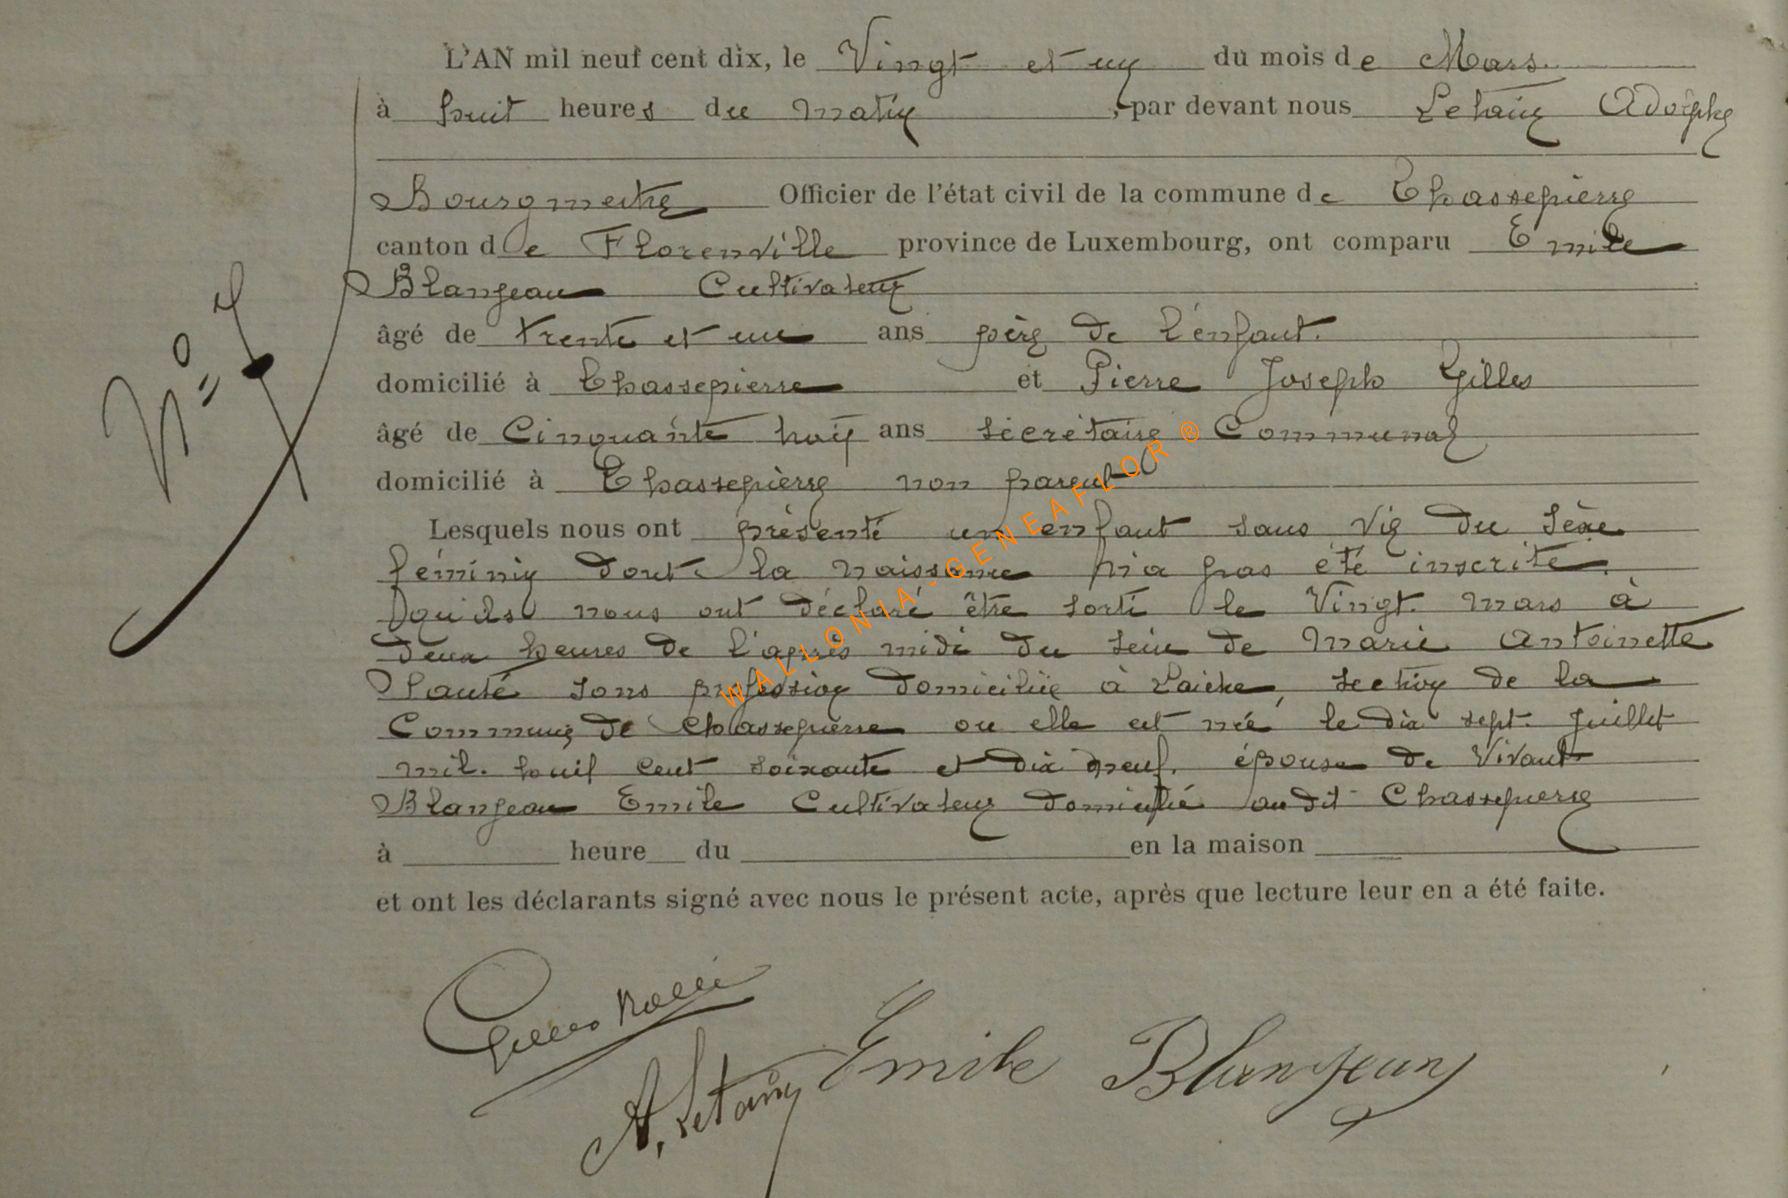 L'AN mil neuf cent dix, le Vingt et un du mois de Mars.
à huit heures du matin, par devant nous Letaix Adolphe
Bourgmestre Officier de l'état civil de la commune de Chassepierre
canton de Florenville province de Luxembourg, ont comparu Emile
Blanjean Cultivateur
âgé de trente et un ans père de l'enfant.
domicilié à Chassepierre et Pierre Joseph Gilles
N° âgé de Cinquante huit ans secrétaire Communal
domicilié à Chassepierre non parent
Lesquels nous ont présenté un enfant sans vie du sexe
féminin dont la naissance n'a pas été inscrite.
qu'ils nous ont déclaré être sorti le Vingt mars à
deux heures de l'après midi du sein de Marie Antoinette
sans profession domiciliée à Laiche, section de la
Commune de Chassepierre ou elle est née le dix sept Juillet
mil. huit cent soixante et dix neuf. épouse de Vivant
Blanjean Emile Cultivateur domicilié audit Chassepierre
à heure du en la maison
et ont les déclarants signé avec nous le présent acte, après que lecture leur en a été faite.
Gilles
A. Letaix Emile Blanjean
WALLONIA-GENEAFLOR ®